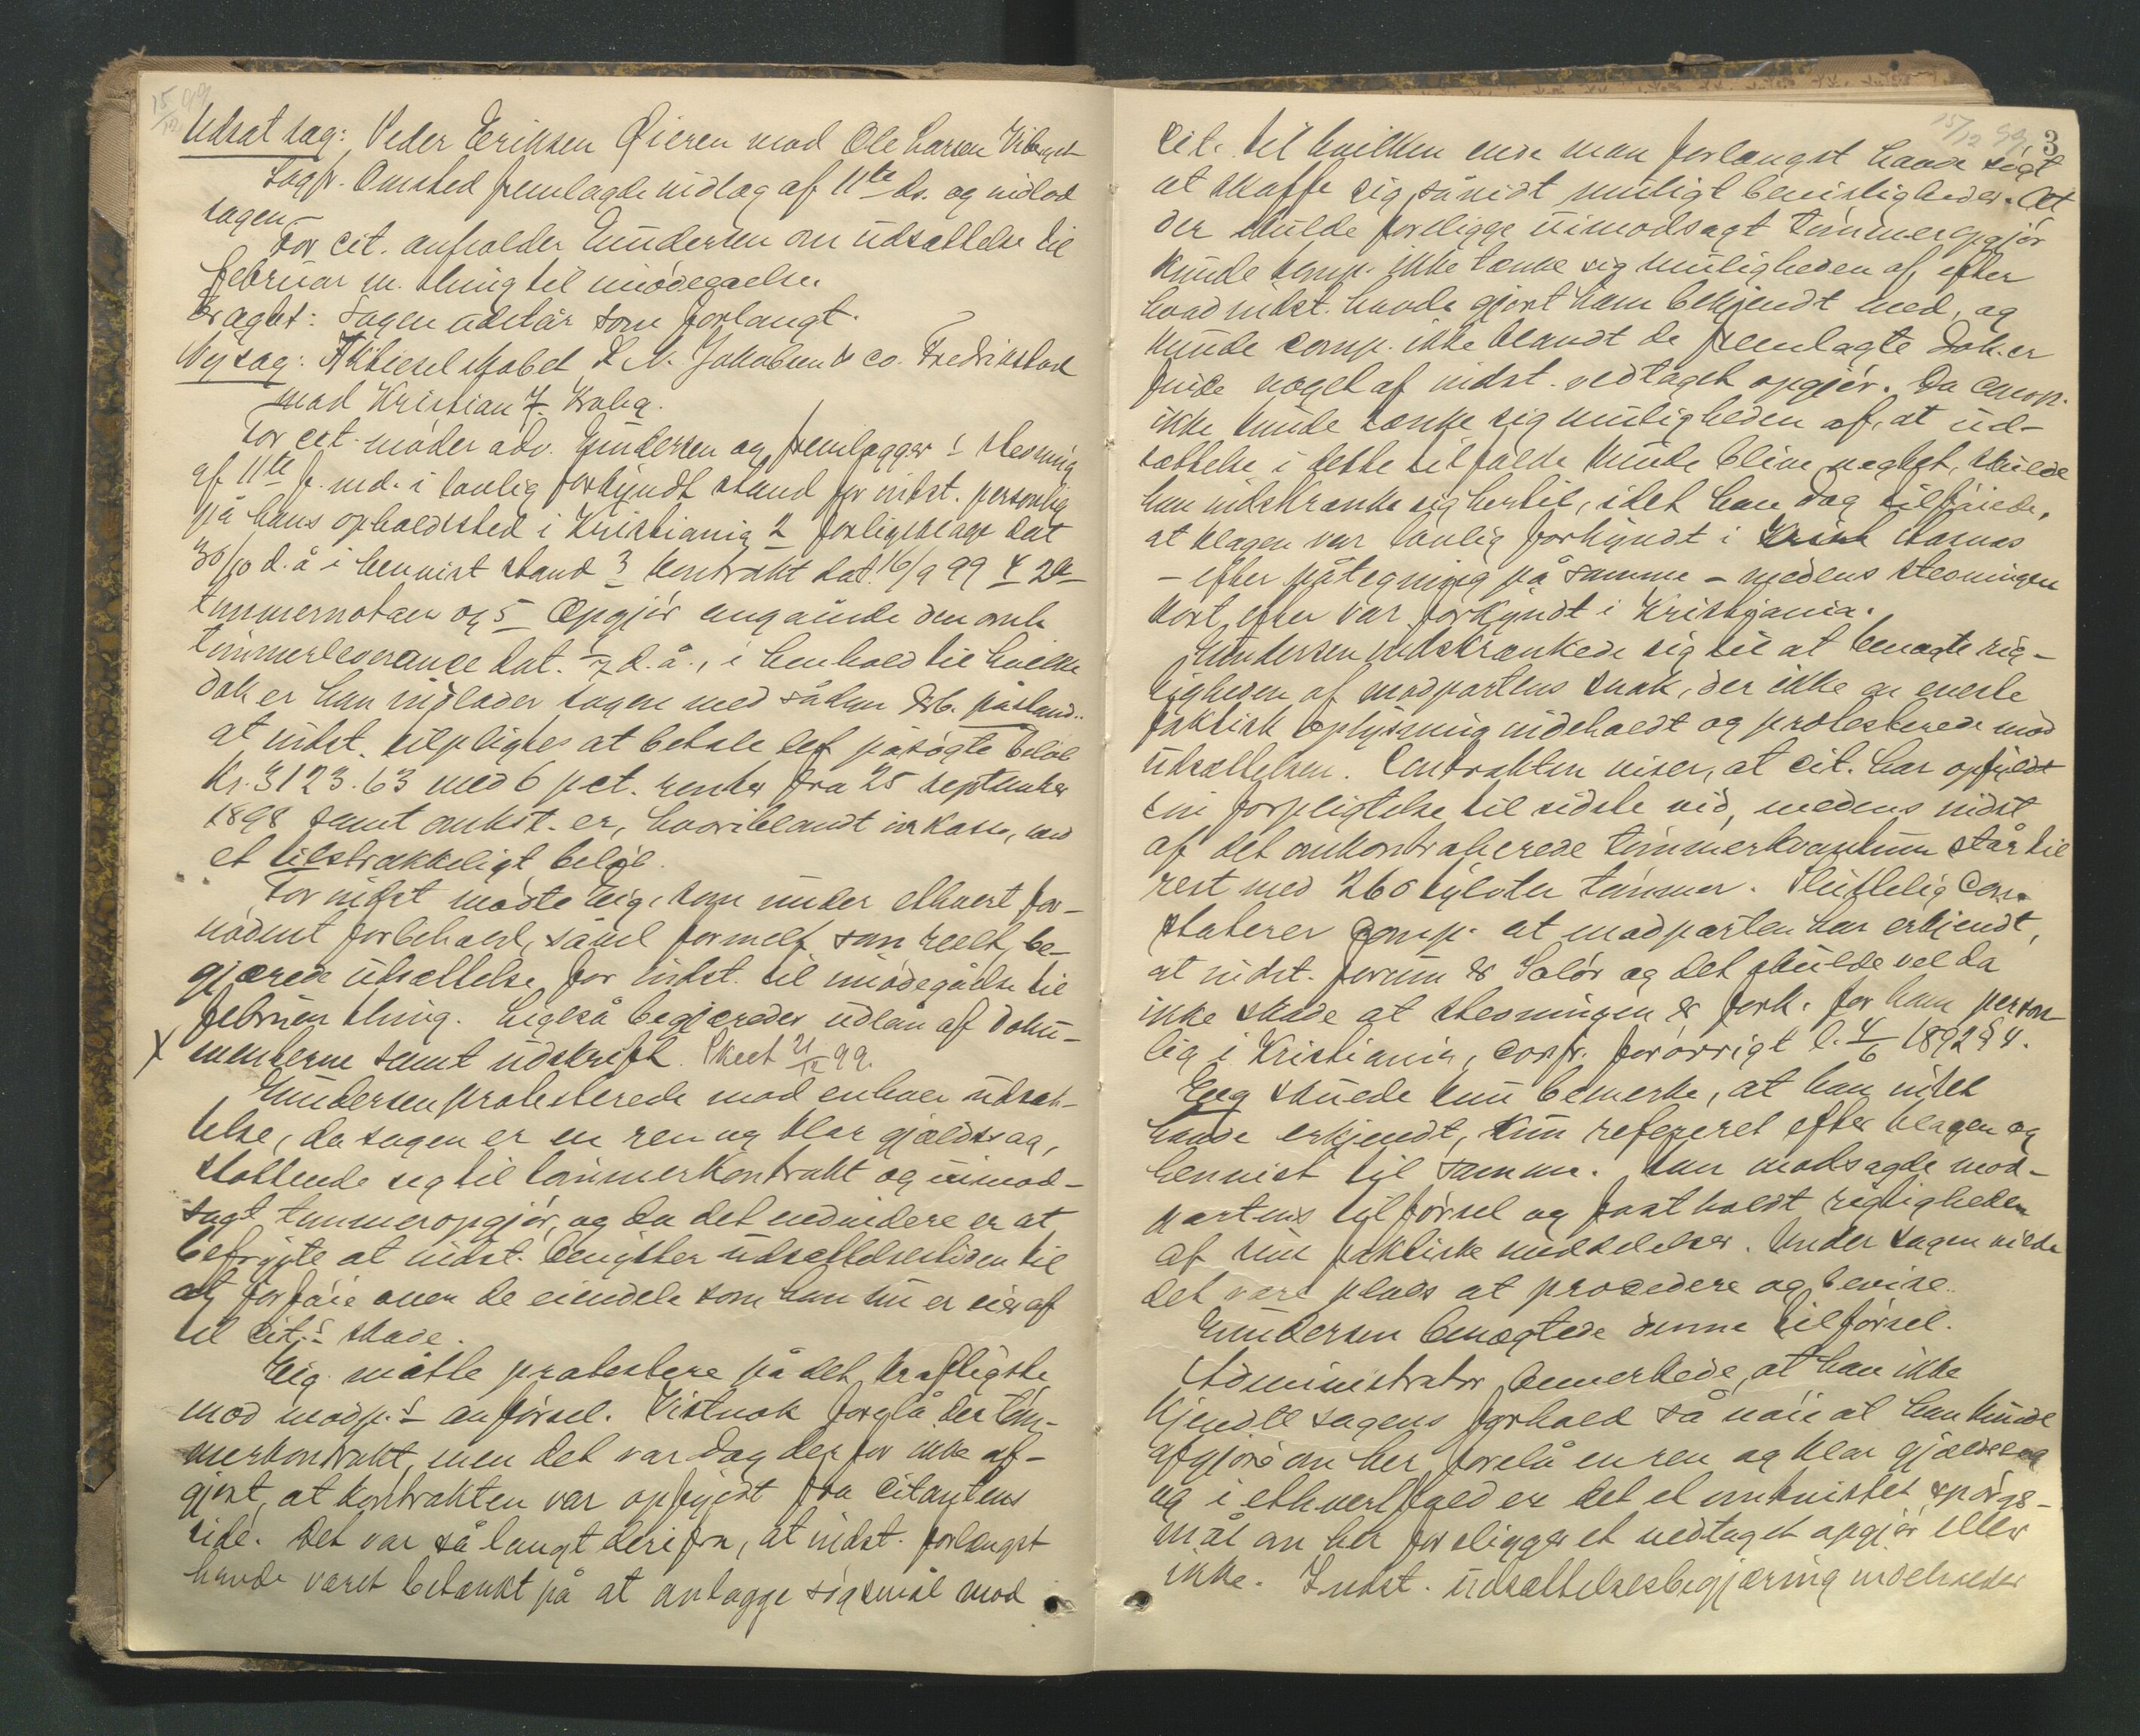 15/12 99
Udsat sag: Peder Eriksen Øieren mod Ole Larsen
Sagf. Omsted fremlagde indlæg af 11te ds. og indlod
sagen.
For cit. anholder Gundersen om udsættelse til
februar m. thing til imødegåelse.
Eragtet: Sagen udstår som forlangt.
Ny sag: Aktieselskabet L. N. Jakobsen & co. Fredrikstad
mod Kristian F. Kolby.
For cit. møder adv. Gundersen og fremlægger 1 stevning
af 11te f. md. i lovlig forkyndt stand for indst. personlig
på hans opholdssted i Kristiania 2 forligsklage dat
30/10 d. å i henvist stand 3 kontrakt dat. 16/9 99 4 2de
tømmernotaer og 5 Opgjør angående den omh.
tømmerleverance dat. d. å., i henhold til hvilke
dok.er han indlader sagen med sådan påstand:
at indst. tilpligtes at betale det påsøgte beløb
Kr. 3123.63 med 6 pct. renter fra 25 september
1898 samt omkst.er, hvoriblandt inkasso, med
et tilstrækkeligt beløb.
For indst mødte Eig, som under ethvert for-
nødent forbehold, såvel formelt som reelt, be-
gjærede udsættelse for indst. til imødegåelse til
februar thing. Ligeså begjæredes udlån af doku-
x menterne samt udskrift. Skeet 21/12 99.
Gundersen protesterede mod enhver udsæt-
telse, da sagen er en ren og klar gjældssag,
støttende sig til tømmerkontrakt og uimod-
sagt tømmeropgjør, og da det endvidere er at
befrygte at indst. benytter udsættelsestiden til
at forføie over de eiendele som han nu er eier af
til cit.s skade.
Eig måtte protestere på det kraftigste
mod modp.s anførsel. Vistnok forelå der tøm-
merkontrakt, men det var dog derfor ikke af-
gjort, at kontrakten var opfyldt fra citantens
side. Det var så langt derifra, at indst. forlængst
havde været betænkt på at anlægge søgsmål mod
15/12 99 3
cit. til hvilken ende man forlængst havde søgt
at skaffe sig såvidt muligt bevisligheder. At
der skulde foreligge uimodsagt tømmeropgjør
kunde comp. ikke tænke sig muligheden af efter
hvad indst. havde gjort ham bekjendt med, og
kunde comp. ikke blandt de fremlagte dok.er
finde noget af indst. vedtaget opgjør. Da comp.
ikke kunde tænke sig muligheden af, at ud-
sættelse i dette tilfælde kunde blive nægtet, skulde
han indskrænke sig hertil, idet han dog tilføiede,
at klagen var lovlig forkyndt i
– efter påtegning på samme – medens stevningen
kort efter var forkyndt i Kristjania.
Gundersen indskrænkede sig til at benægte rig-
tigheden af modpartens snak, der ikke en eneste
faktisk oplysning indeholdt og protesterede mod
udsættelsen. Contrakten viser, at cit. har opfyldt
sin forpligtelse til sidste vid, medens indst.
af det omkontraherede tømmerkvantum står til
rest med 260 tylvter tømmer. Sluttelig con-
staterer comp. at modparten har erkjendt,
at indst. forum er Solør og det skulde vel da
ikke skade at stevningen er fork. for ham person-
lig i Kristiania, confr. forøvrigt l. 4/6 1892 § 4.
Eeg skulde kun bemerke, at han intet
havde erkjendt, kun refereret efter klagen og
henvist til samme. Han modsagde mod-
partens tilførsel og fastholdt rigtigheden
af sine faktiske meddelelser. Under sagen vilde
det være plads at procedere og bevise.
Gundersen benægtede denne tilførsel.
Administrator bemerkede, at han ikke
kjendte sagens forhold så nøie at han kunde
afgjøre om her forelå en ren og klar gjældssag
og i ethvert fald er det et omtvistet spørgs-
mål om her foreligger et vedtaget opgjør eller
ikke. Indst. udsættelsesbegjæring indeholder